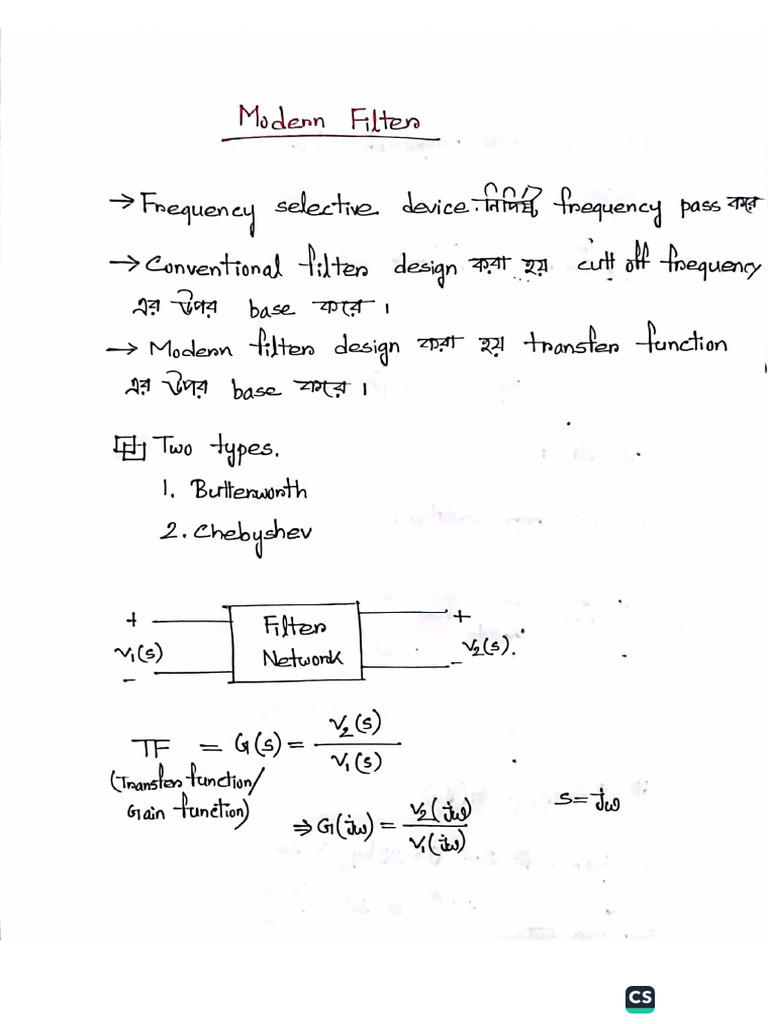 Modern Filter
→ Frequency selective device. নির্দিষ্ট frequency pass করে
→ Conventional filter design করা হয় cutt off frequency
এর উপর base করে।
→ Modern filter design করা হয় transfer function
এর উপর base করে।
Two types.
1. Butterworth
2. Chebyshev
+ Filter +
V₁(s) Network V₂(s).
- -
TF = G(s) = V₂(s) / V₁(s)
(Transfer function/
Gain function)
⇒ G(jω) = V₂(jω) / V₁(jω) s = jω
CS